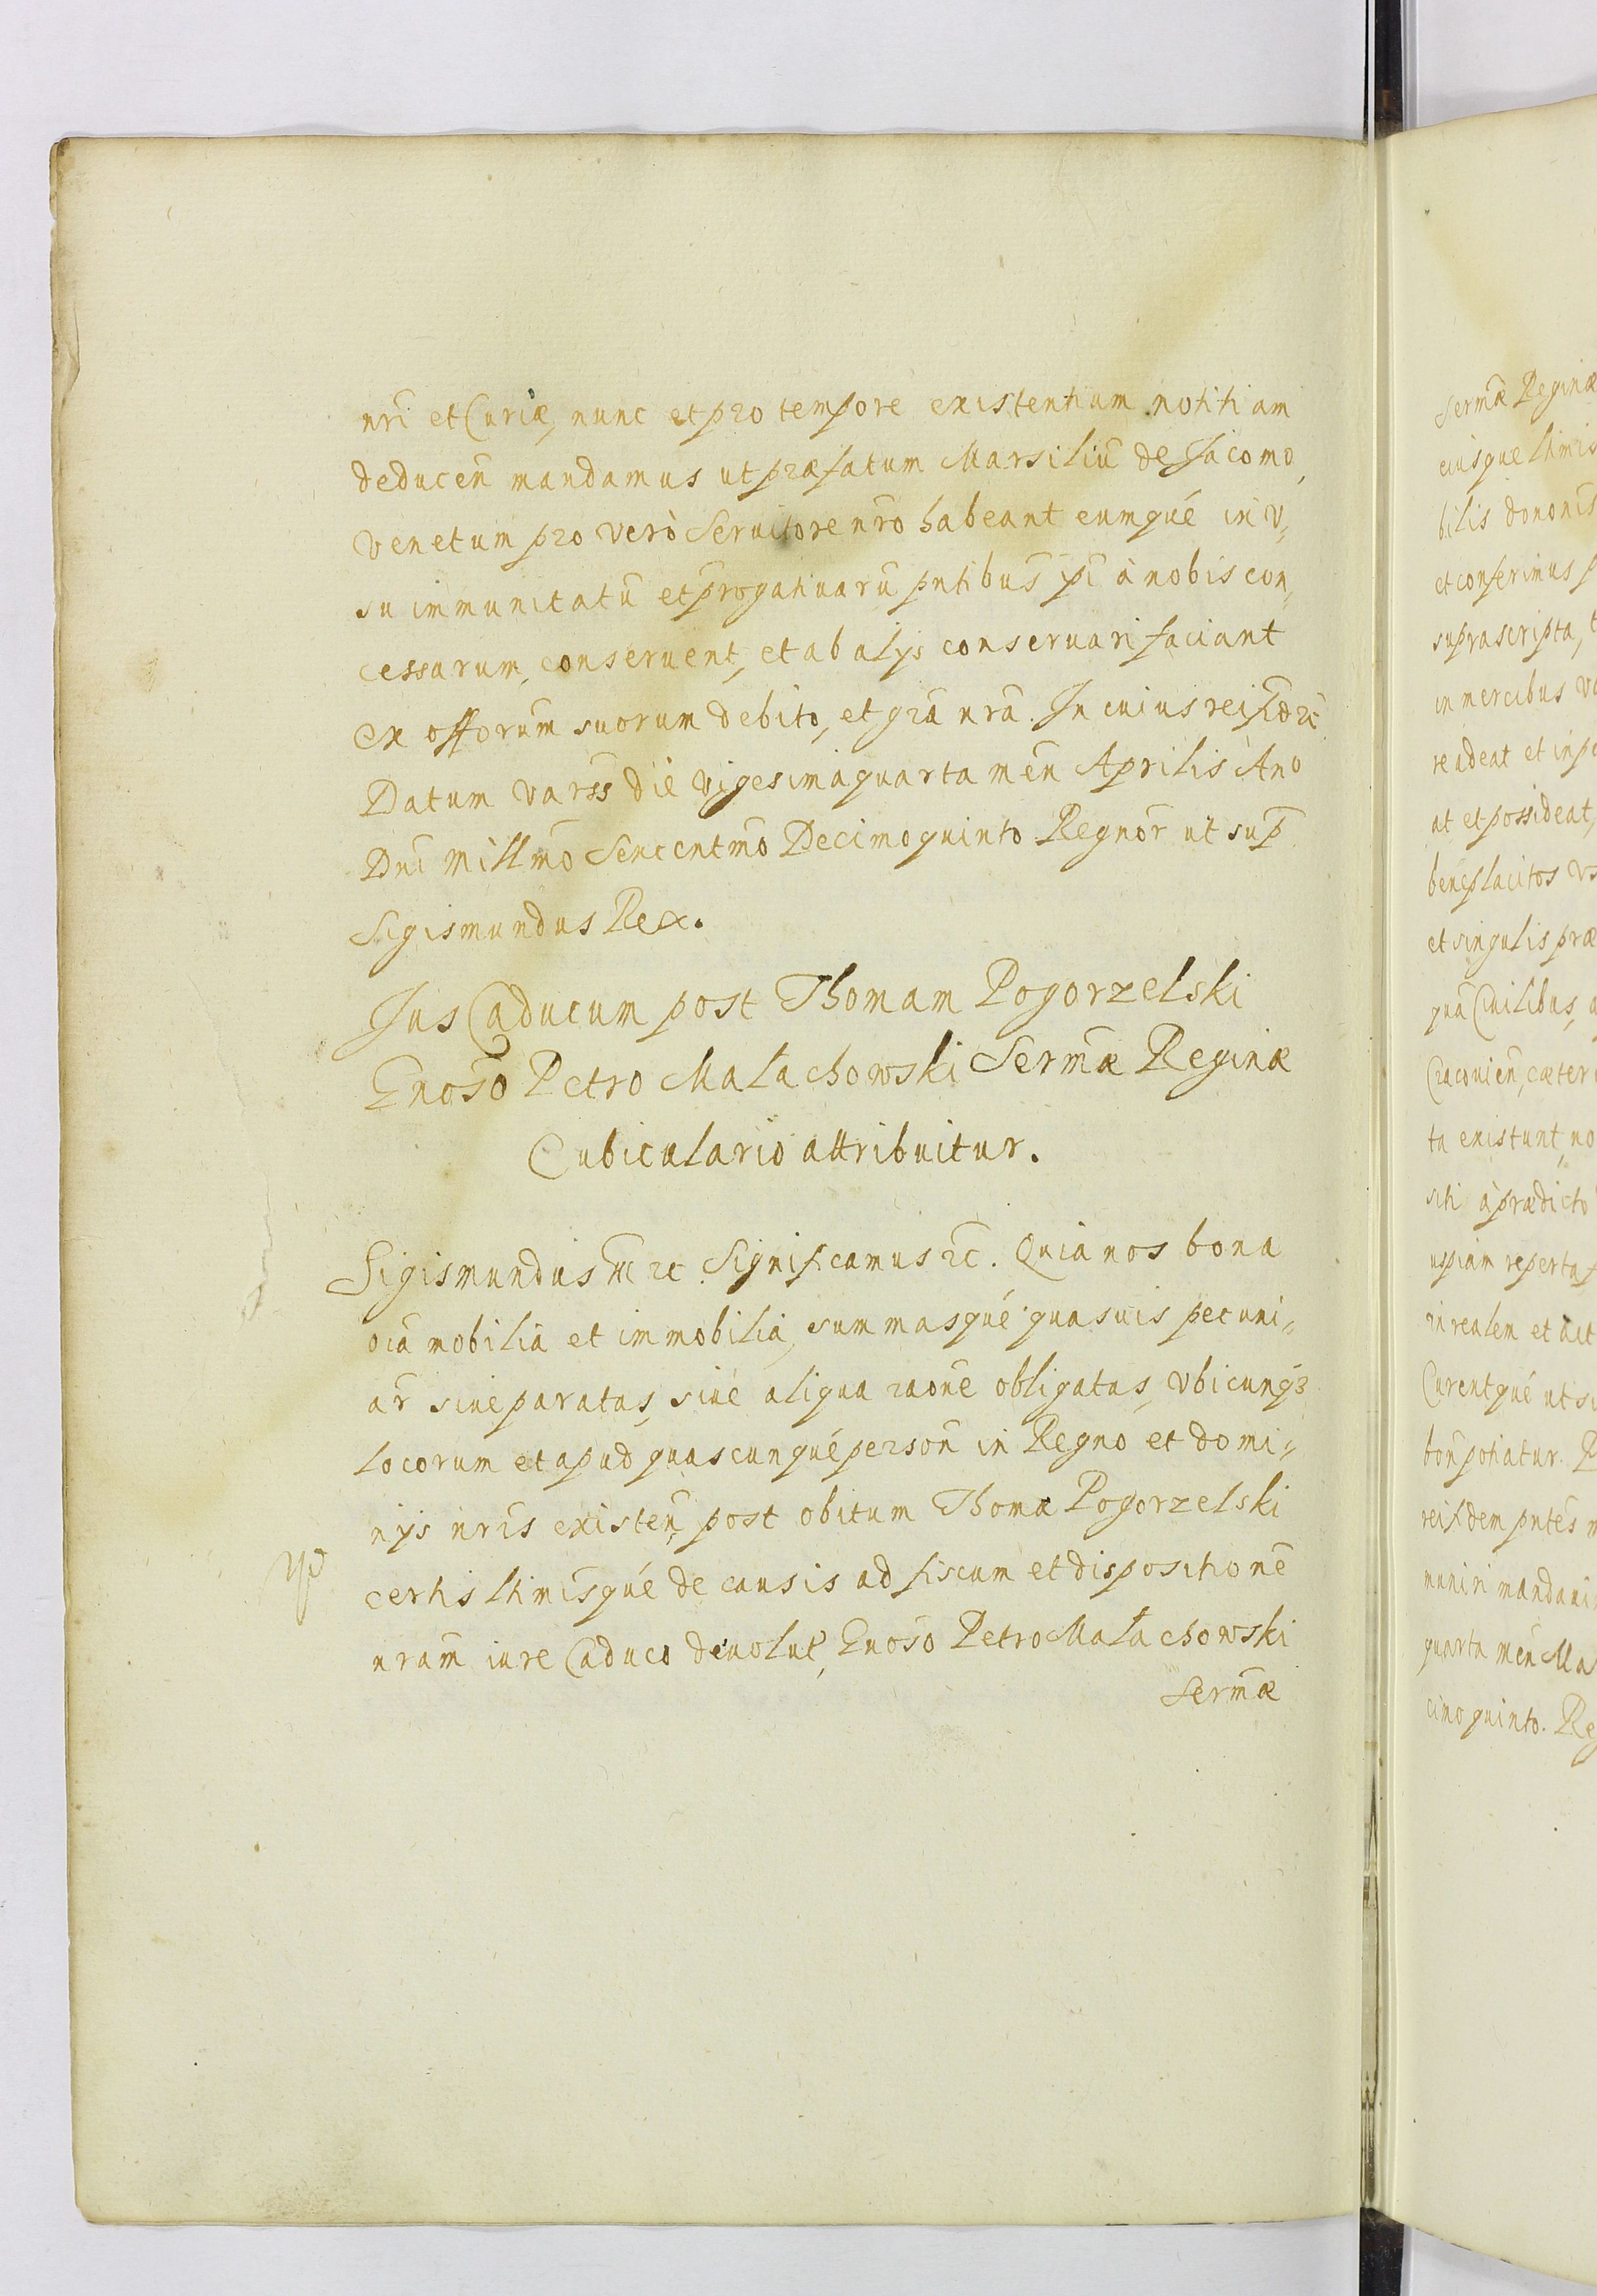 nr̃i et Curiæ, nunc et pro tempore existentium notitiam
deduceñ mandamus ut præfatum Marsiliũ de Jacomo,
Venetum pro verò Seruitore nr̃o habeant eumqué in v„
su immunitatũ et prr̃ogatiuarũ pñtibus à nobis con„
cessarum, conseruent, et ab alijs conseruari faciant
ex offorũm suorum debito, et gr̃a nr̃a. In cuius rei fid̃ ꝛc
Datum Varss die vigesima quarta meñ Aprilis Ano
Dnĩ Millmõ Sexcentmõ Decimo quinto Regnor̃ ut sup̃
Sigismundus Rex.
Jus Caducum post Thomam Pogorzelski
Gnoso Petro Małachowski Serm̃æ Reginæ
Cubiculario attribuitur.
Sigismundus III ꝛc Significamus ꝛc. Quia nos bona
oĩa mobilia et immobilia, summasqué quasuis pecuni„
ar̃ siue paratas, siué aliqua raõne obligatas, vbicunqꝫ
locorum et apud quascunqué persoñ in Regno et domi„
nijs nr̃is existeñ, post obitum Thomæ Pogorzelski
certis ltimĩsqué de causis ad fiscum et dispositionẽ
nram̃ iure Caduco deuolut, Gnoso Petro Małachowski
Serm̃æ
Serm̃æ Reginæ
eiusque ltimis
bilis dononis
et conferimus
suprascripta,
in mercibus
readeat et in
at et possideat,
beneplacitos
et singulis præ
quã Ciuilibus,
Cracouieñ, cæter
ta existunt, no
siti à prædicto
uspiam reperta
in realem et act
Curentqué ut
boñ potiatur.
rei fidem pñtes
muniri mandaui
quarta meñ Ma
cimo quinto. Re